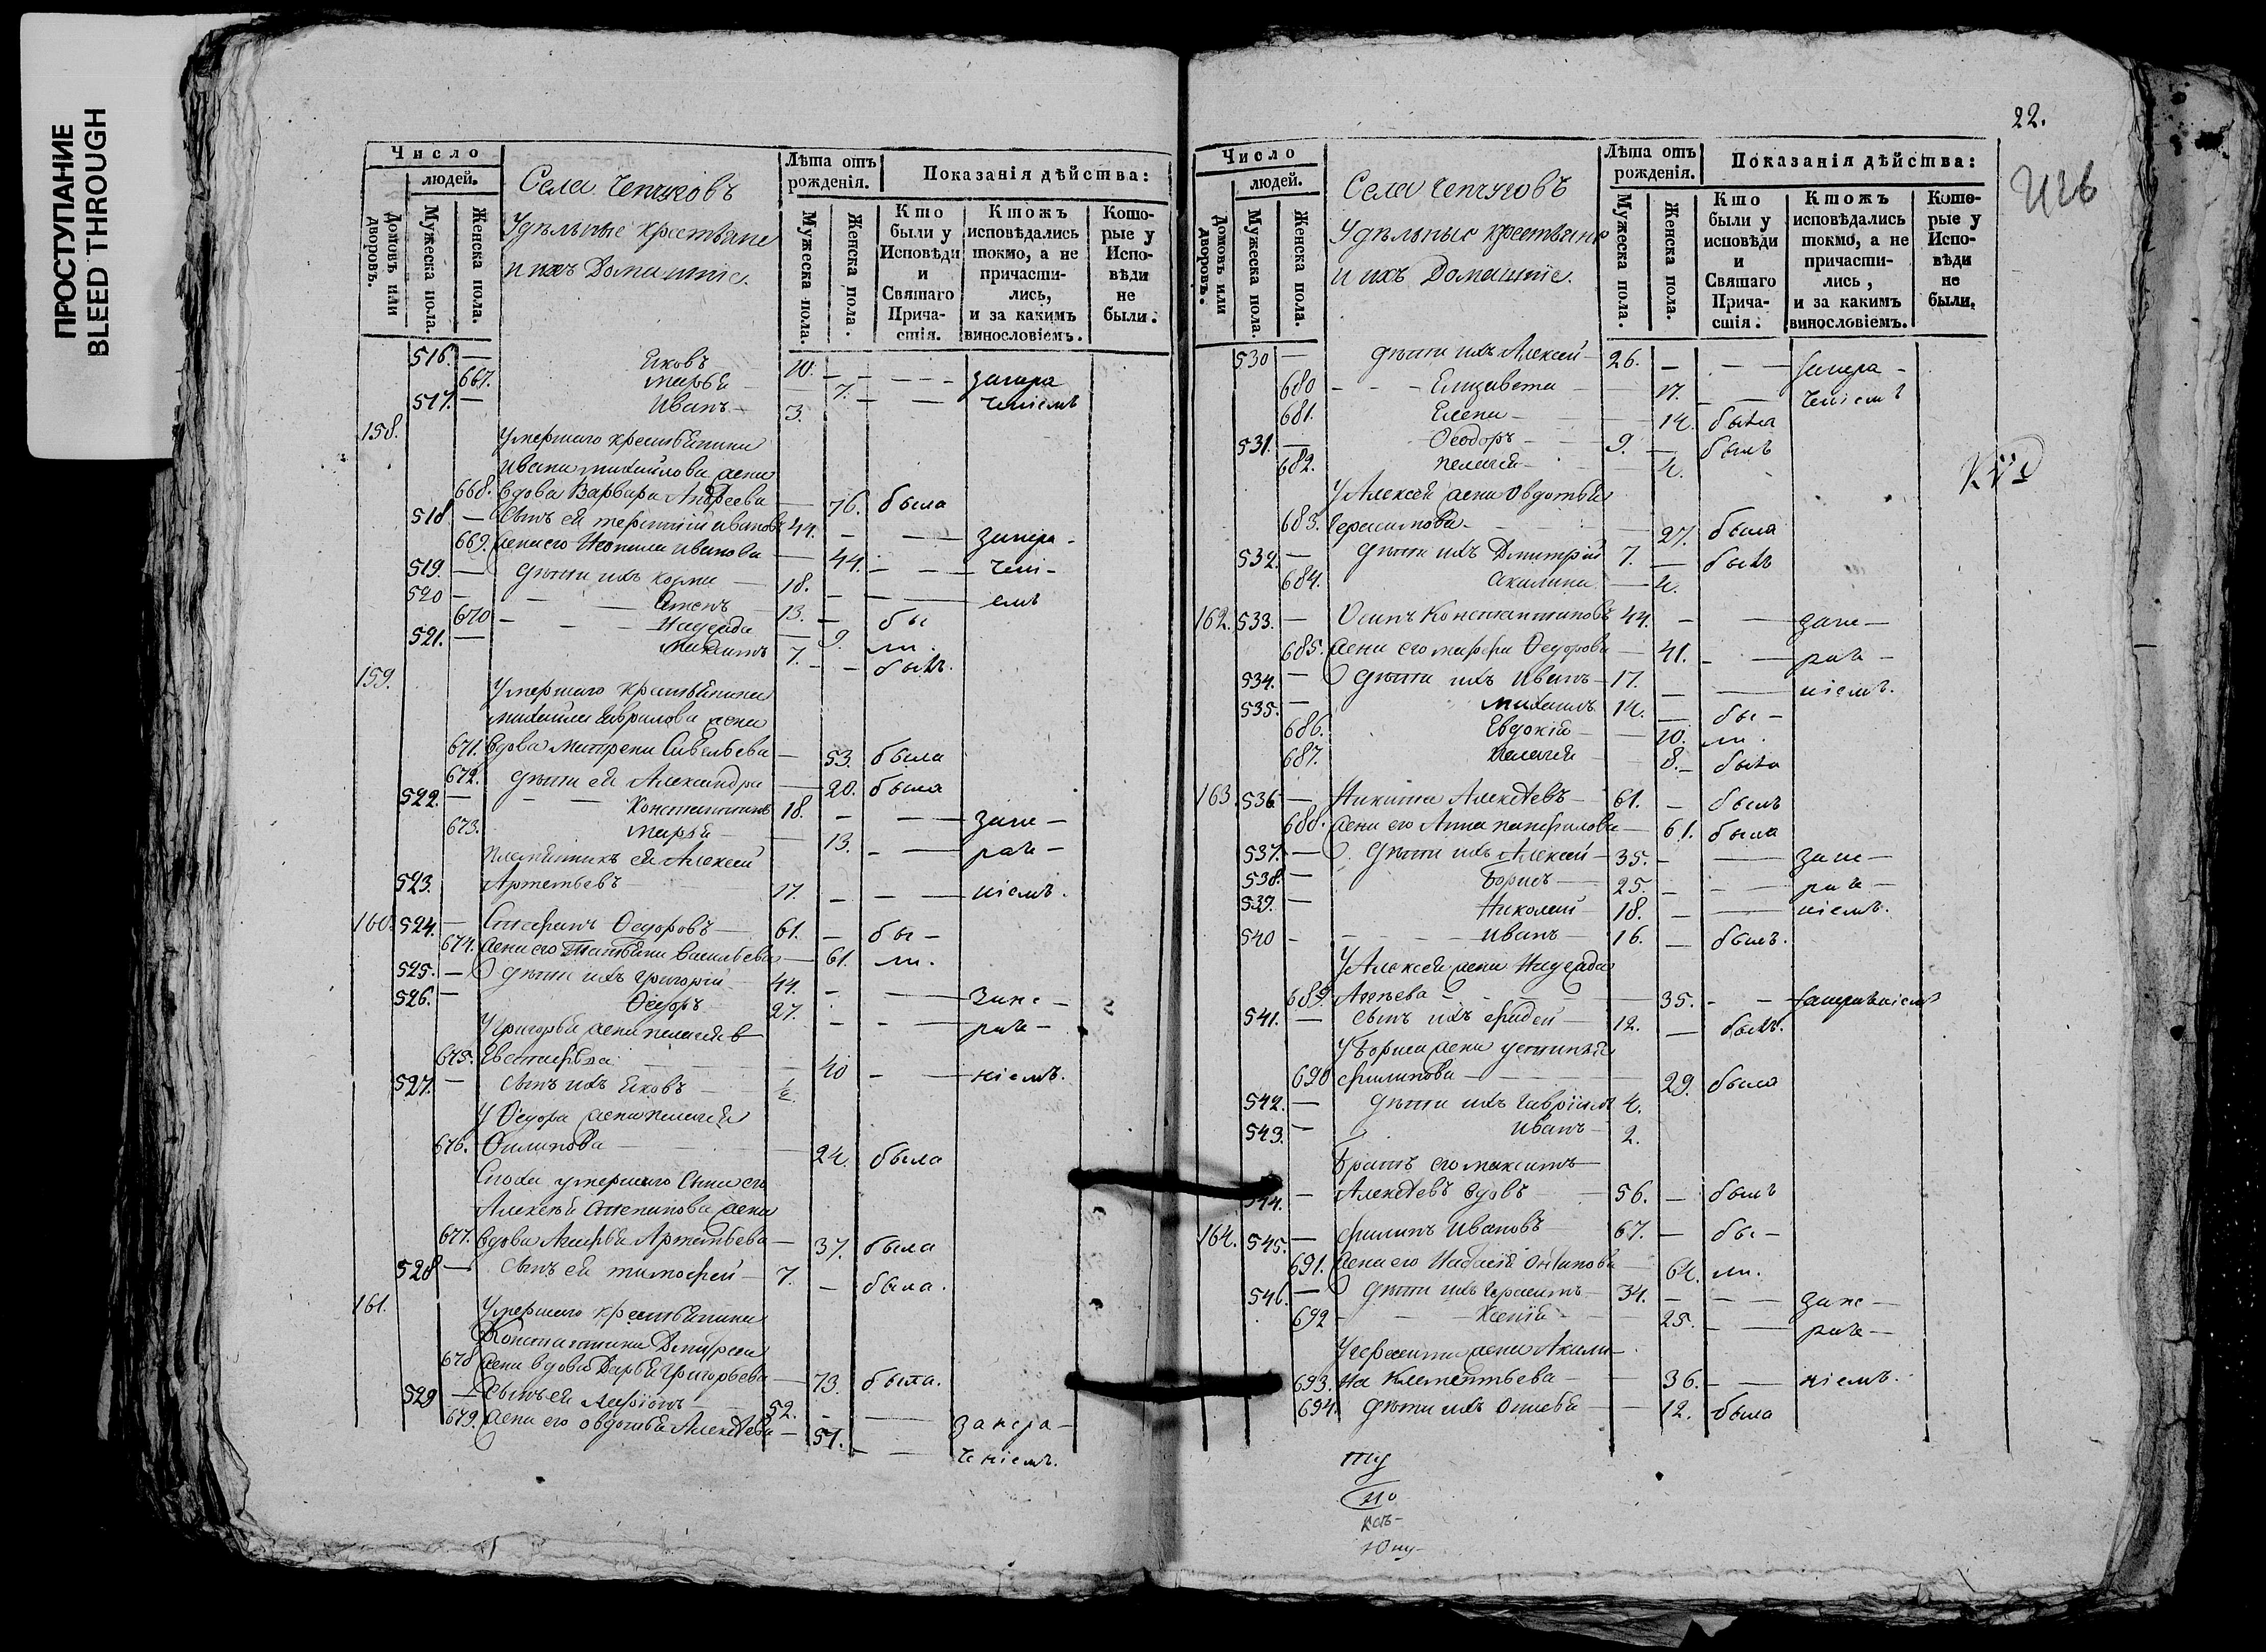 ПРОСТУПАНИЕ
BLEED THROUGH
Число
людей.
Домовъ или дворовъ.
Мужеска пола.
Женска пола.
Села Чепчуговъ
Удѣльные крестьяне
и ихъ Домашнiе.
Лѣта отъ рожденiя.
Мужеска пола.
Женска пола.
Показанiя дѣйства:
Кто были у Исповѣди и Святаго Прича-стiя.
Ктожъ исповѣдались токмо, а не причасти-лись, и за какимъ винословiемъ.
Кото-рые у Испо-вѣди не были.
516. — Яковъ 10. — — — запира
667. Марья — 7. — — ченiемъ
517. — Иванъ — 3.
158. Умершаго крестьянина
Ивана Михайлова жена
668. вдова Варвара Андреева — 76. была
518 — Сынъ ея Терентiй Ивановъ 44. — — запира-
669. жена его Неонила Иванова — 44. — — ченi-
519. — дѣти ихъ Козма — 18. — — емъ
520 — Семенъ 13. — бы
670 — Надежда — 9. ли.
521. — Максимъ 7. — былъ.
159. Умершаго крестьянина
Михайла Гаврилова жена
671. вдова Матрена Савельева — 53. была
672. дѣти ея Александра — 20. была
522. — Константинъ 18. — — запи-
673. Марья — 13. — — раче-
племянникъ ея Алексей
523. Артемьевъ 17. — — нiемъ.
160. 524. — Стефанъ Ѳедоровъ — 61. — бы-
674. жена его Татьяна Васильева — 61. ли.
525. — дѣти ихъ Григорiй 44. — — запи-
526. — Ѳедоръ 27. — — раче-
У Григорья жена Пелагея
675. Евстафьева — 40 — — нiемъ.
527. — сынъ ихъ Яковъ — ½.
У Ѳедора жена Пелагея
676. Филипова — 24. была
Сноха умершаго сына его
Алексѣя Степанова жена
677. вдова Агафья Артемьева — 37. была
528 — сынъ ея Тимофей — 7. — была.
161. Умершаго крестьянина
Константина
678 жена вдова Дарья Григорьева — 73. была.
529 — Сынъ ея Ларiонъ 52. — — запира-
679. жена его Овдотья Алексѣева — 51. — — ченiемъ.
22.
Число
людей.
Домовъ или дворовъ.
Мужеска пола.
Женска пола.
Села Чепчуговъ
Удѣльныя крестьяне
и ихъ Домашнiе.
Лѣта отъ рожденiя.
Мужеска пола.
Женска пола.
Показанiя дѣйства:
Кто были у исповѣди и Святаго Прича-стiя.
Ктожъ исповѣдались токмо, а не причасти-лись, и за какимъ винословiемъ.
Кото-рые у Испо-вѣди не были.
530 — дѣти ихъ Алексей — 26. — — запира-
680 — Елизавета — 17. — — ченiемъ
681. Елена — 14. была
531. — Ѳеодоръ — 9. — былъ
682. Пелагея — 4.
У Алексея жена Овдотья
683. Герасимова — 27. была
532. — дѣти ихъ Дмитрiй 7. — былъ
684. Акилина — 4.
162. 533. — Осипъ Константиновъ 44. — — запи-
685. жена его Марфа Ѳедорова — 41. — — раче-
534. — дѣти ихъ Иванъ — 17. — — нiемъ.
535. — Михаилъ 14. — бы-
686. Евдокiя — 10. ли.
687. Пелагея — 8. — была
163. 536 — Никита Алексѣевъ — 61. — былъ
688. жена его Анна Панфилова — 61. была
537. — дѣти ихъ Алексей — 35. — — запи-
538. — Борисъ — 25. — — раче-
539. — Николай — 18. — — нiемъ.
540 — Иванъ — 16. — былъ.
У Алексея жена Надежда
689. Агеева — 35. — — запираченiемъ
541. — сынъ ихъ Фадей — 12. — былъ.
У Бориса жена Устинья
690 Филипова — 29. была
542. — дѣти ихъ Гаврiилъ 4.
543. — Иванъ — 2.
Братъ его Максимъ
544. — Алексѣевъ вдовъ 56. — былъ
164. 545. — Филипъ Ивановъ 67. — бы-
691. жена его Настасiя 64. ли.
546. — дѣти ихъ Герасимъ — 34. — — запи-
692 — Ксенiя — 25. — — раче-
У Герасима жена Акили-
693. на Климентьева — 36. — — нiемъ.
694. дѣти ихъ — 12. была